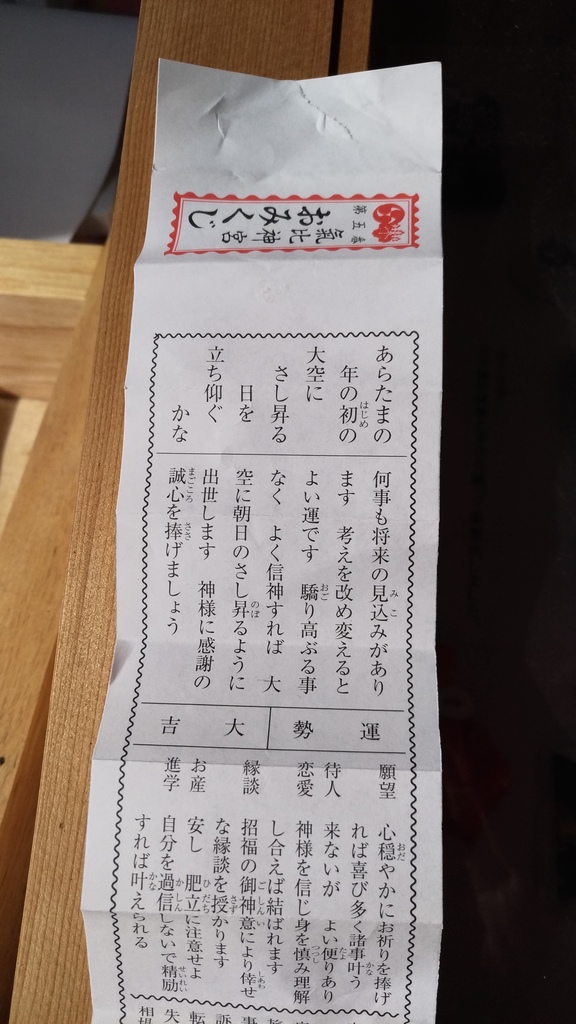 おみくじ
氣比神宮
第五番
あらたまの
年の初の
はじめ
大空に
さし昇る
日を
立ち仰ぐ
かな
何事も将来の見込みがあり
みこ
ます 考えを改め変えると
よい運です 驕り高ぶる事
おご
なく よく信神すれば 大
空に朝日のさし昇るように
のぼ
出世します 神様に感謝の
誠心を捧げましょう
まごころ ささ
運勢
大吉
願望 心穏やかにお祈りを捧げ
おだ
れば喜び多く諸事叶う
かな
待人 来ないが よい便りあり
たよ
恋愛 神様を信じ身を慎み理解
つつし
し合えば結ばれます
縁談 招福の御神意により倖せ
ごしんい しあわ
な縁談を授かります
さず
お産 安し 肥立に注意せよ
ひだち
進学 自分を過信しないで精励
かしん せいれい
すれば叶えられる
かな